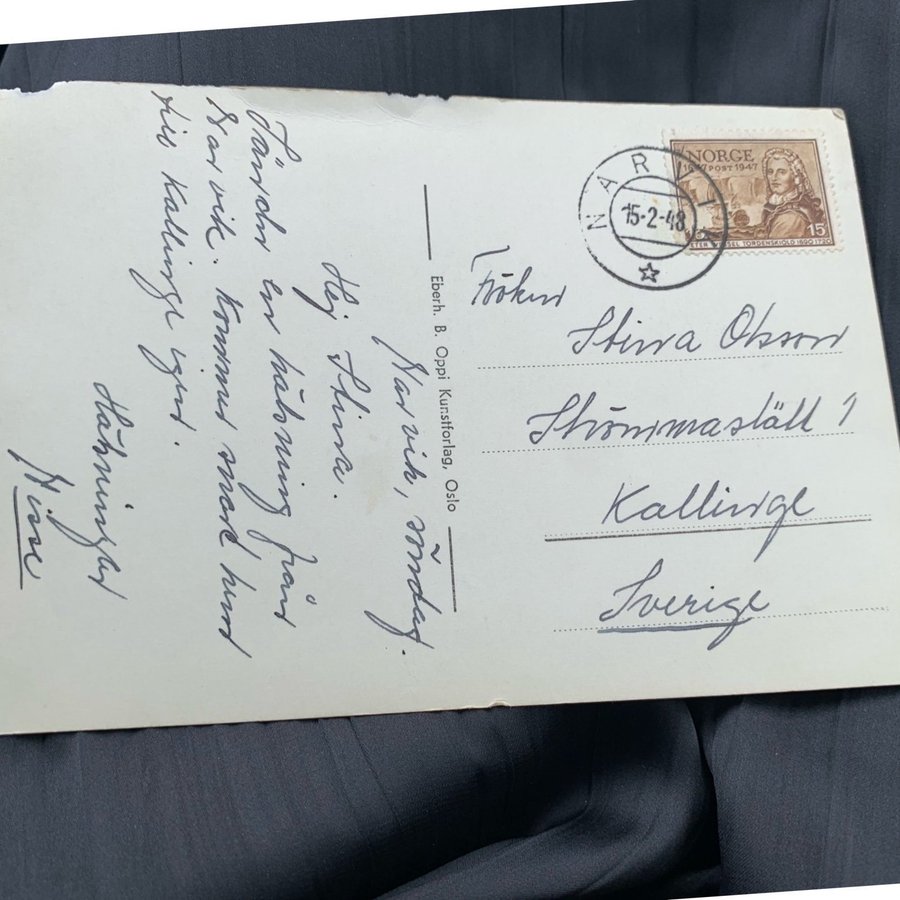 Narvik, söndag.
Hej Stina.
Sänder en hälsning från
Narvik. Kommer snart hem
till Kallinge igen.
Hälsningar
Nisse
Eberh. B. Oppi Kunstforlag, Oslo
NARVIK
15-2-48
NORGE
1647 POST 1947
15
PETER WESSEL TORDENSKIOLD 1690 1720
Fröken
Stina Olsson
Kallinge
Sverige